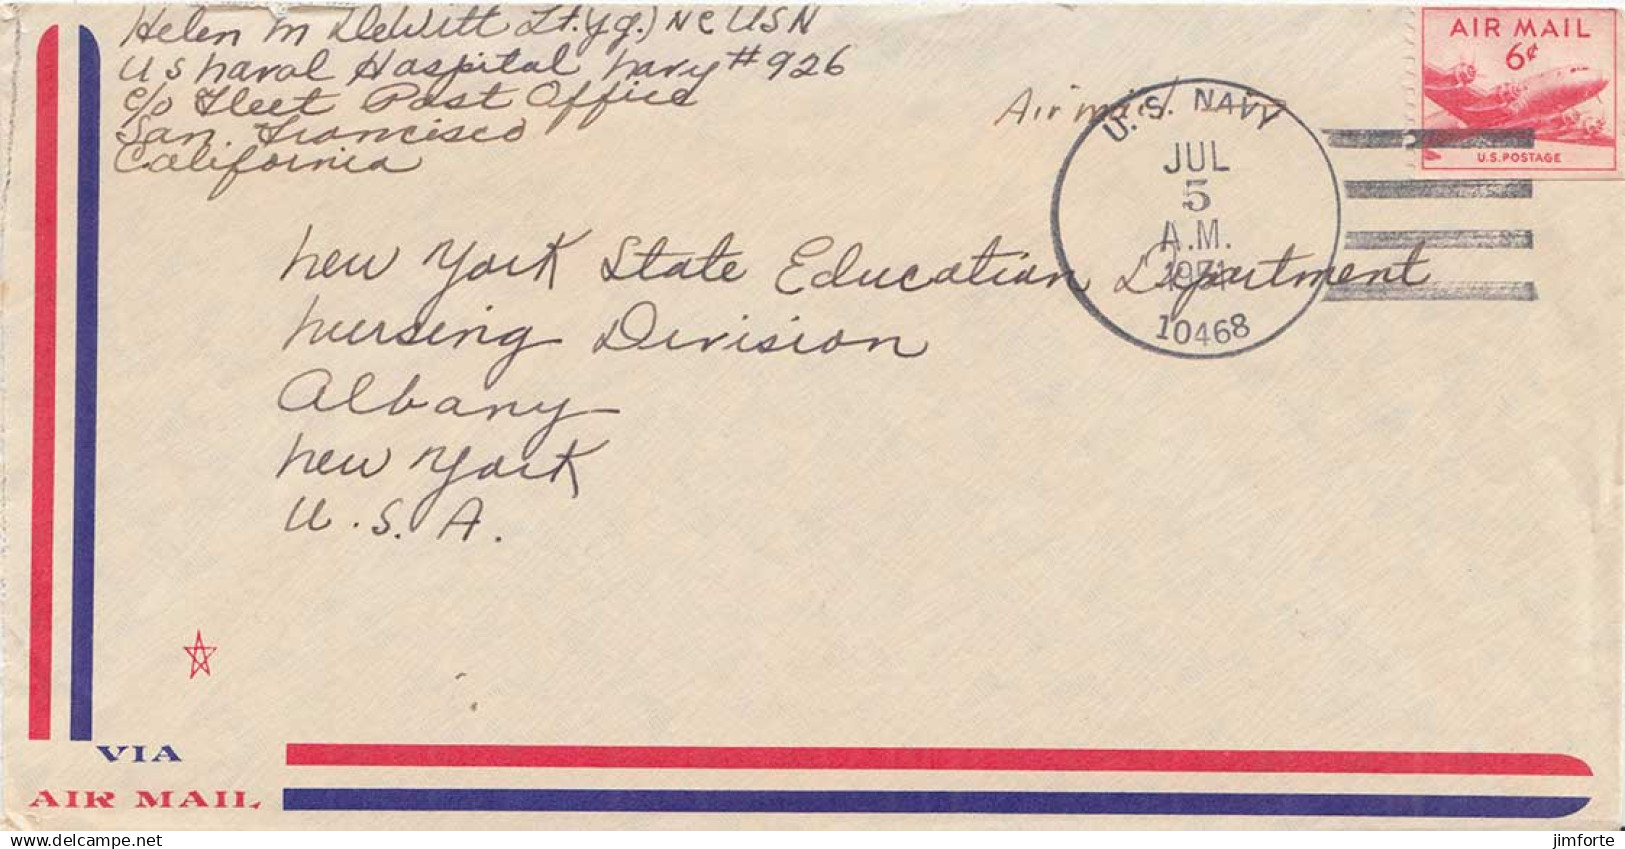 Helen M DeWitt Lt.(jg.) NC USN
U S Naval Hospital Navy #926
c/o Fleet Post Office
San Francisco
California
Air mail
AIR MAIL
6¢
U.S. POSTAGE
U.S. NAVY
JUL
5
A.M.
1951
10468
New York State Education Department
Nursing Division
Albany
New York
U.S.A.
VIA
AIR MAIL
delcampe.net
jimforte